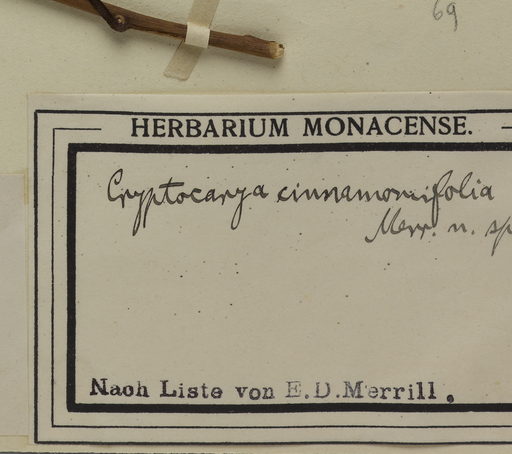 69
HERBARIUM MONACENSE.
Cryptocarya cinnamomifolia
Merr. n. sp
Nach Liste von E.D.Merrill.